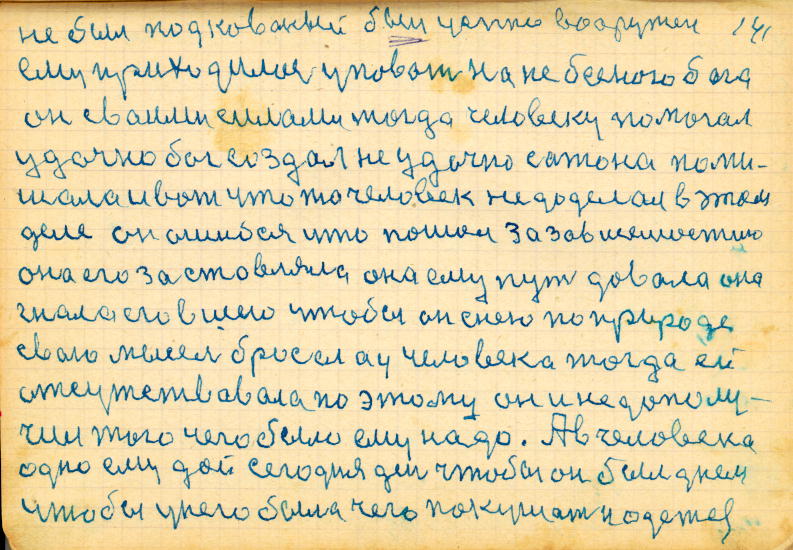 не был подкованый был цепко вооружен 141
ему приходилося уповат на небесного бога
он своими силами тогда человеку помогал
удачно бог создал не удачно сатона поми-
шала и вот что то человек недоделал в этом
деле он ошибся што пошол за зависимостию
она его заставляла она ему пут довала она
гнала его в шею чтобы он с нею по природе
сваю мысел бросел а у человека тогда ей
отсутствавала по этому он и недополу-
чил того чего было ему надо. А в человека
одно ему дай сегодня ден чтобы он был днем
чтобы у него была чего покушат и одетсе